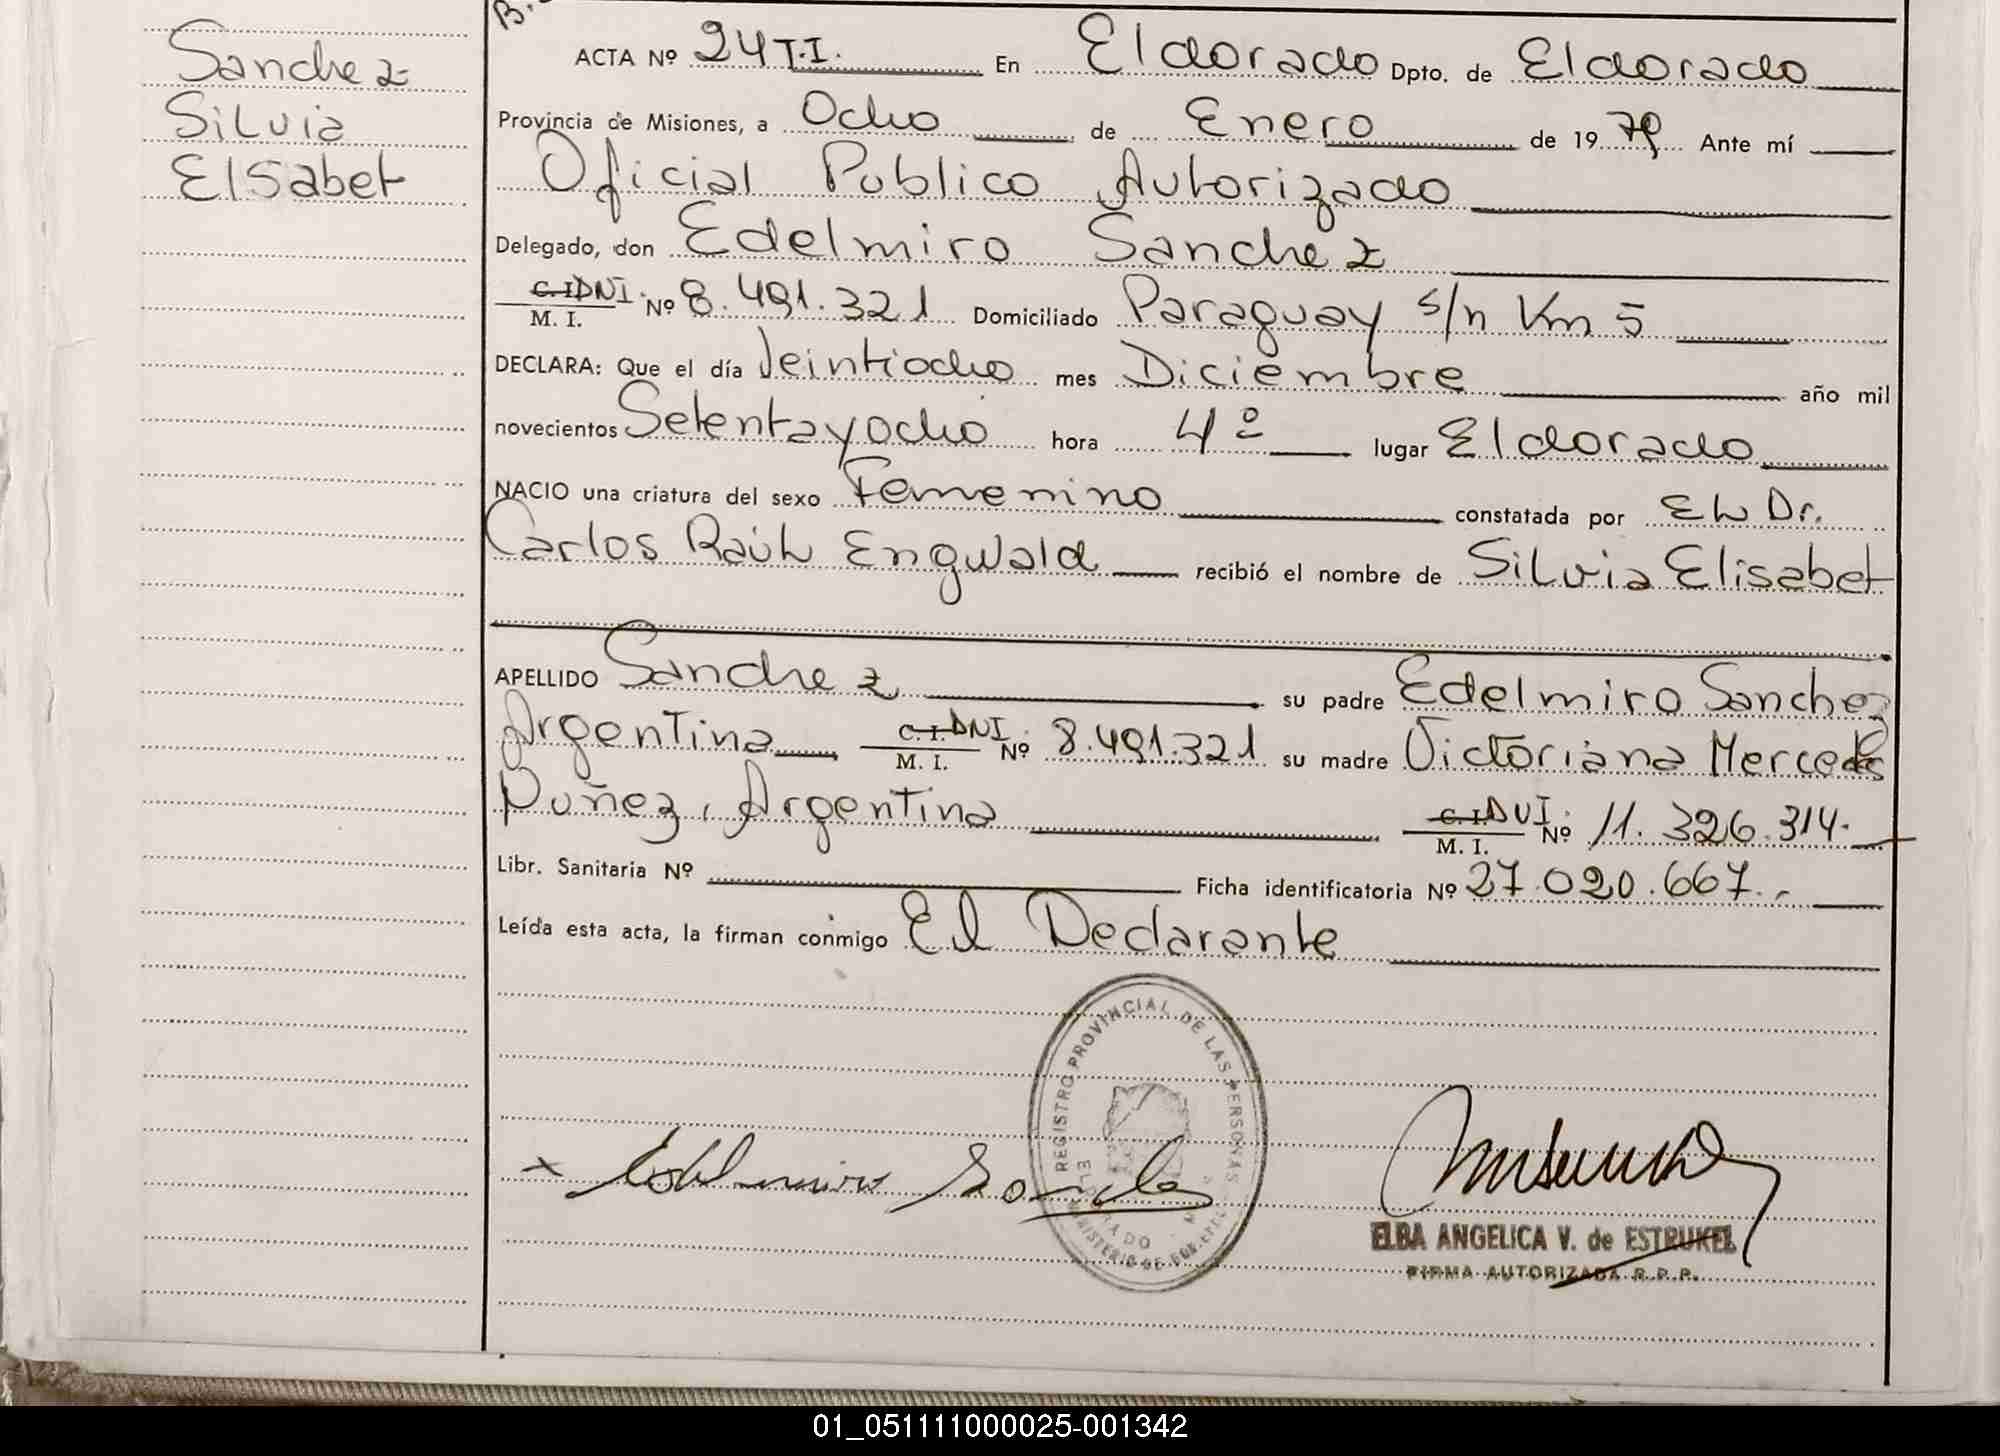 B.
Sanchez
Silvia
Elsabet
ACTA Nº 24 T.I. En Eldorado Dpto. de Eldorado
Provincia de Misiones, a Ocho de Enero de 1979 Ante mí
Oficial Publico Autorizado
Delegado, don Edelmiro Sanchez
C.I. DNI. M. I. Nº 8.491.321 Domiciliado Paraguay s/n Km 5
DECLARA: Que el día Veintiocho mes Diciembre año mil
novecientos Setentayocho hora 4º lugar Eldorado
NACIO una criatura del sexo Femenino constatada por EL Dr.
Carlos Raúl Engwald recibió el nombre de Silvia Elisabet
APELLIDO Sanchez su padre Edelmiro Sanchez
Argentina C.I. DNI M. I. Nº 8.491.321 su madre Victoriana Mercedes
Nuñez, Argentina C.I. DNI. M. I. Nº 11.326.314.
Libr. Sanitaria Nº Ficha identificatoria Nº 27.020.667.-
Leída esta acta, la firman conmigo El Declarante
REGISTRO PROVINCIAL DE LAS PERSONAS
ELDORADO
MINISTERIO DE GOB.
x Edelmiro Sanchez
ELBA ANGELICA V. de ESTRUKEL
FIRMA AUTORIZADA R.P.P.
01_051111000025-001342